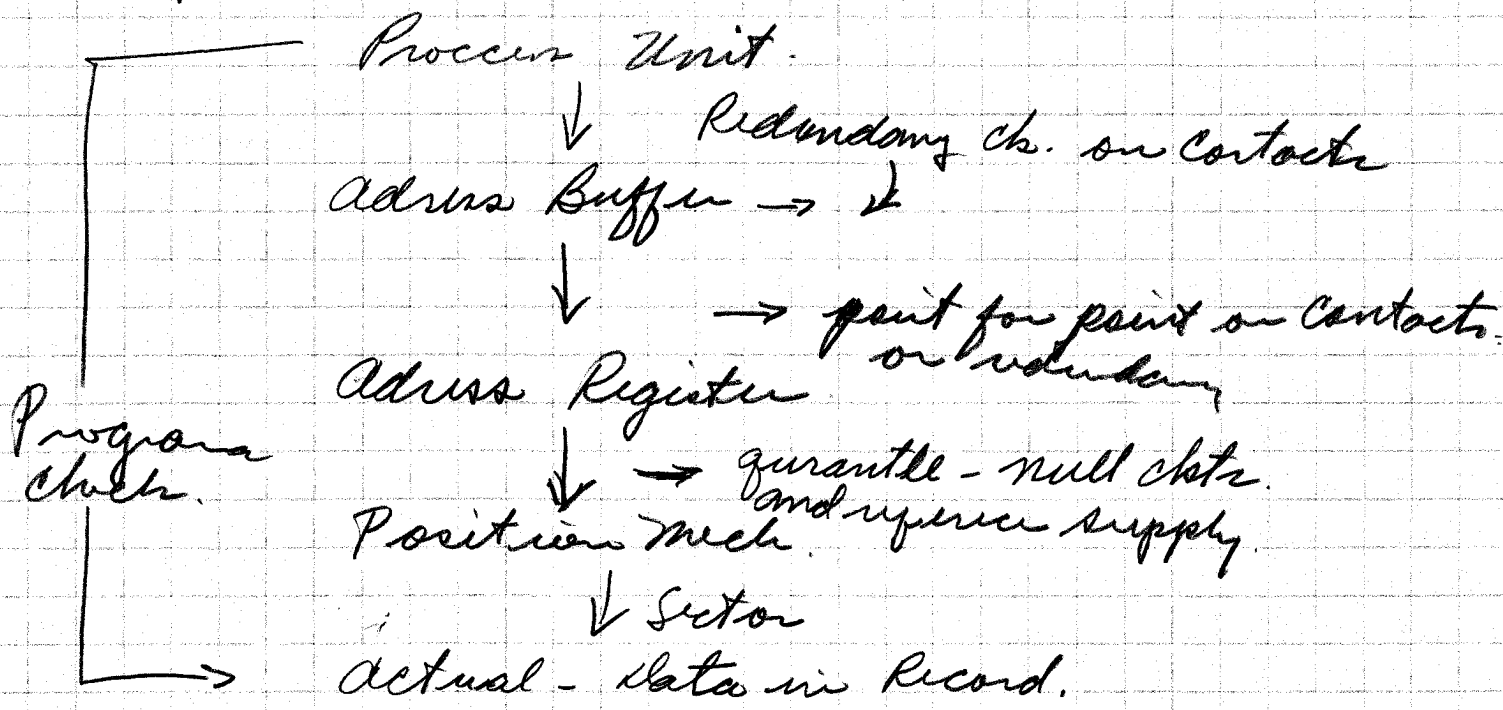 Proccess Unit.
Redundancy ck. on Contacts
Adress Buffer →
→ point for point on Contacts.
or redundancy
Adress Register
Program
Check.
→ gurantee - null ckts.
and reference supply.
Position Mech.
Sector
Actual - Data in Record.